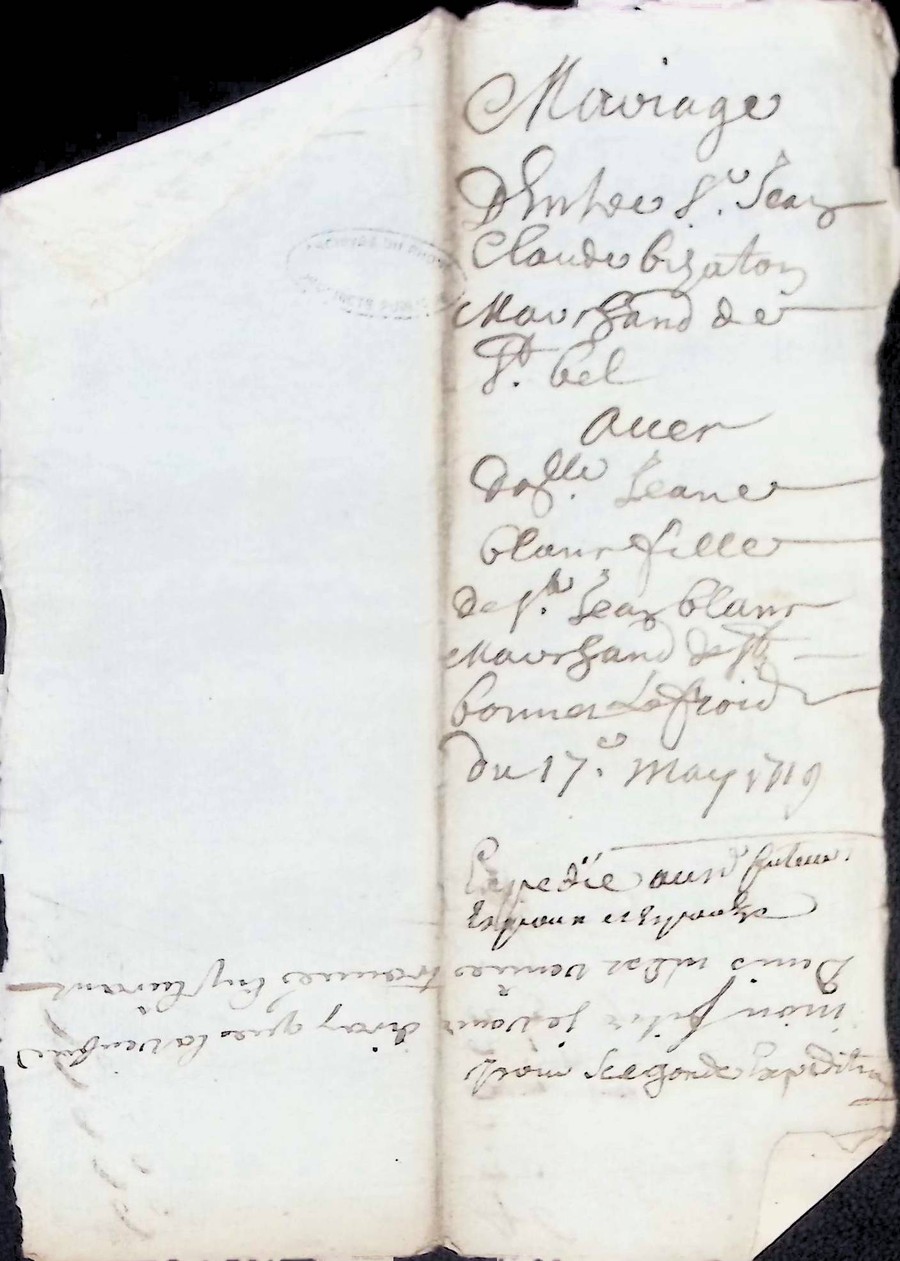 Mariage
D'Entre Sr. Jean
Claude bizaton
Marchand de
St. bel
Avec
Dalle. Jeane
blanc fille
de Sr. Jean blanc
Marchand de St
bonnet Le froid
Du 17e. May 1719
Expedié aux futeurs
Espoux et Espouze
pour Segonde Expedition
mon frere je vous diray que la
Denis